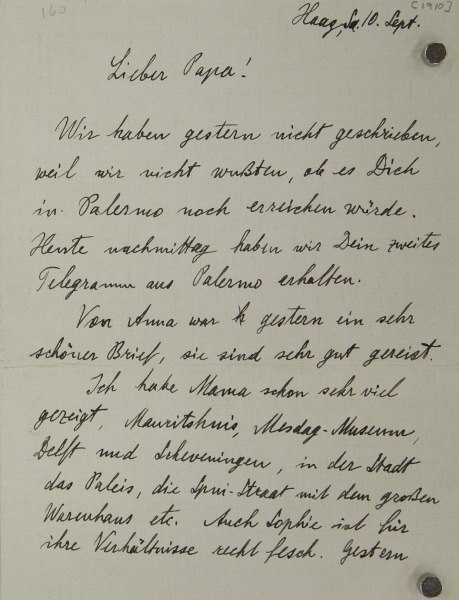 160
[1910]
Haag, Sa. 10. Sept.
Lieber Papa!
Wir haben gestern nicht geschrieben,
weil wir nicht wußten, ob es Dich
in Palermo noch erreichen würde.
Heute nachmittag haben wir Dein zweites
Telegramm aus Palermo erhalten.
Von Anna war gestern ein sehr
schöner Brief, sie sind sehr gut gereist.
Ich habe Mama schon sehr viel
gezeigt, Mauritshuis, Mesdag-Museum,
Delft und Scheveningen, in der Stadt
das Paleis, die Spui-Straat mit dem großen
Warenhaus etc. Auch Sophie ist für
ihre Verhältnisse recht fesch. Gestern